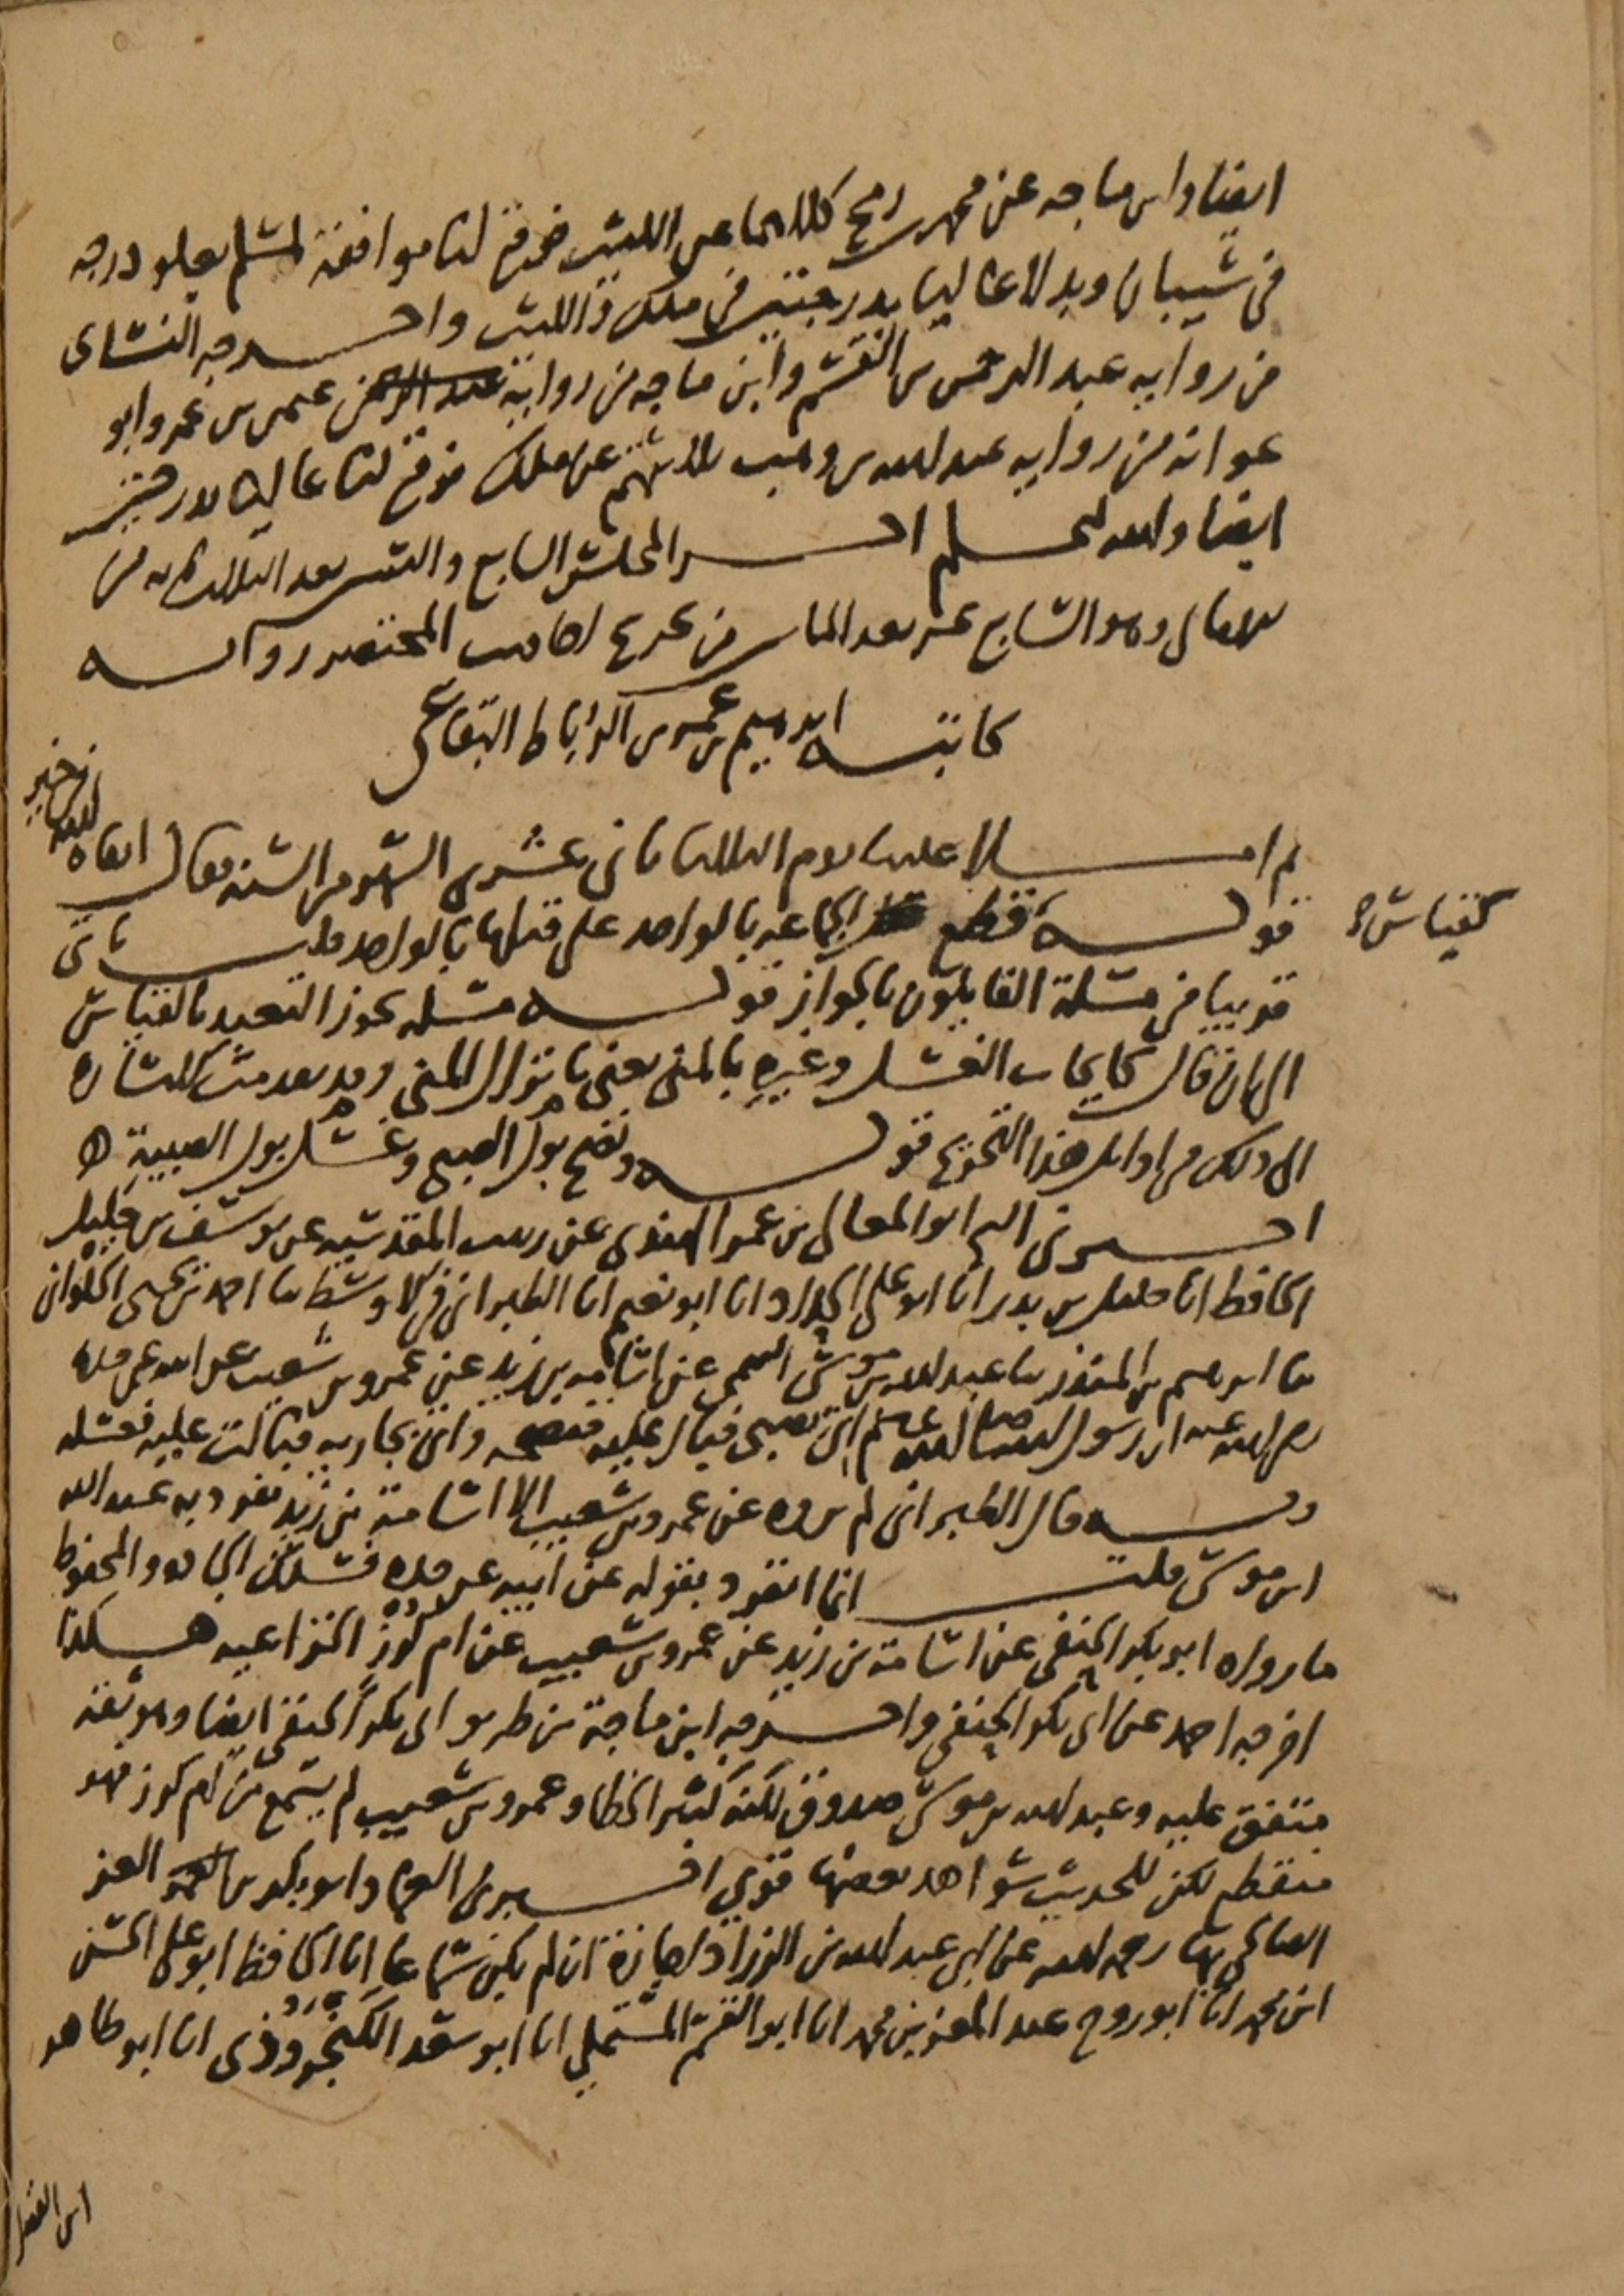 ايضا وابن ماجه عن محمد بن رمح كلاهما عن الليث فوقع لنا موافقة لمسلم بعلو درجه
في شيبان وبدلا عاليا بدرجتين في ملك والليث واخرجه النسائى
من رواية عبد الرحمن بن القسم وابن ماجه من رواية معن بن عيسى وابو
عوانه من رواية عبد الله بن وهب ثلاثتهم عن ملك فوقع لنا عاليا بدرجتين
ايضا والله اعلم اخر المجلس السابع والستين بعد الثلاث ماية من
الامالى وهو السابع عشر بعد الماتين من تخريج احاديث المختصر رواية
كاتبه ابرهيم بن عمر بن الرباط البقاعي
ثم املا علينا يوم الثلاثا ثانى عشرى الشهر من السنة فقال ابقاه الله في خير
قوله قطع الجماعه بالواحد على قتلها بالواحد قلت ياتى
كقياس
قريبا في مسئلة القايلون بالجواز قوله مسئله يجوز التعبد بالقياس
الى ان قال كايجاب الغسل وغيره بالمنى يعني بانزال المني وقد تقدمت الاشارة
الى ذلك في اوايل هذا التخريج قوله ونضح بول الصبي وغسل بول الصبية
اخبرنى ابو المعالى بن عمر الهندى عن زينب المقدسيه عن يوسف بن خليل
الحافظ انا خليل بن بدر انا ابو علي الحداد انا ابو نعيم انا الطبرانى في الاوسط نا احمد بن يحيى الحلوانى
نا ابرهيم بن المنذر نا عبد الله بن موسى التيمى عن اسامه بن زيد عن عمرو بن شعيب عن ابيه عن جده
رضي الله عنه ان رسول الله صلى الله عليه وسلم اتى بصبى فبال عليه فنضحه واتى بجاريه فبالت عليه فغسله
وبه قال الطبرانى لم يروه عن عمرو بن شعيب الا اسامة بن زيد تفرد به عبد الله
ابن موسى قلت انما انفرد بقوله عن ابيه عن جده فسلك الجادة والمحفوظ
ما رواه ابو بكر الحنفى عن اسامة بن زيد عن عمرو بن شعيب عن ام كرز الخزاعيه هكذا
اخرجه احمد عن ابى بكر الحنفي واخرجه ابن ماجة من طريق ابى بكر الحنفى ايضا وهو ثقة
متفق عليه وعبد الله بن موسى صدوق لكنه كثير الخطا وعمرو بن شعيب لم يسمع من ام كرز فهو
منقطع لكن للحديث شواهد بعضها قوي اخبرنى وابو بكر بن العز
الصالحى بها رحمه الله عن ابى عبد الله بن الزراد اجازة ان لم يكن سماعا انا الحافظ ابو علي الحسن
ابن محمد انا ابو روح عبد المعز بن محمد انا ابو القسم المستملي انا ابو سعد الكنجرودى انا ابو طاهر
ابن الفضل